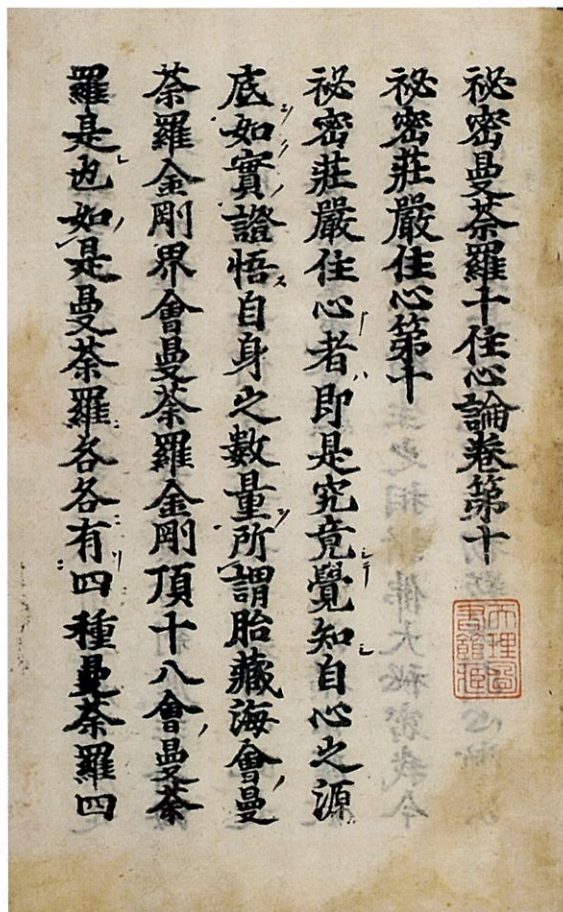 祕密曼荼羅十住心論卷第十
祕密莊嚴住心第十
祕密莊嚴住心者即是究竟覺知自心之源
底如實證悟自身之數量所謂胎藏海會曼
荼羅金剛界會曼荼羅金剛頂十八會曼荼
羅是也如是曼荼羅各各有四種曼荼羅四
天理圖
書館藏